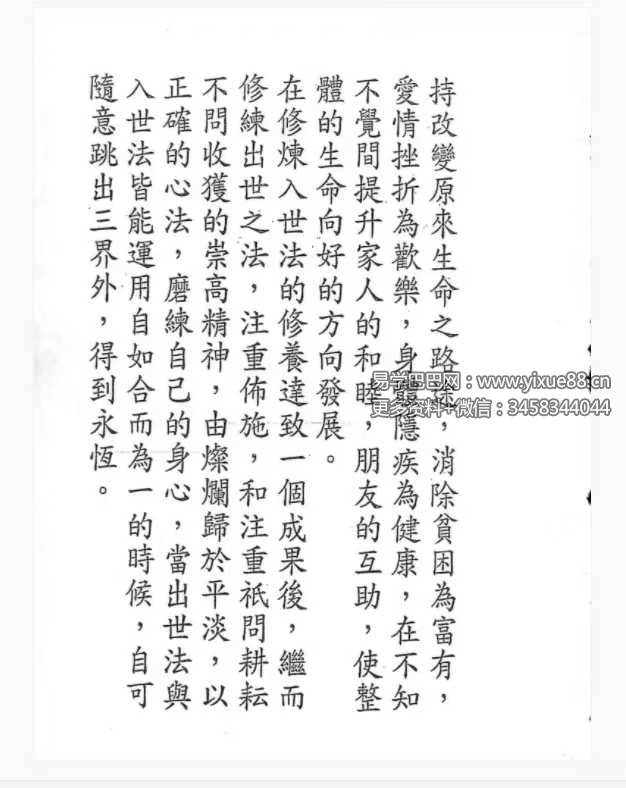 持改變原來生命之路途，消除貧困為富有，
愛情挫折為歡樂，身體隱疾為健康，在不知
不覺間提升家人的和睦，朋友的互助，使整
體的生命向好的方向發展。
在修煉入世法的修養達致一個成果後，繼而
修練出世之法，注重佈施，和注重祇問耕耘
不問收獲的崇高精神，由燦爛歸於平淡，以
正確的心法，磨練自己的身心，當出世法與
入世法皆能運用自如合而為一的時候，自可
隨意跳出三界外，得到永恆。
易学巴巴网：www.yixue88.cn
更多资料+微信：3458344044